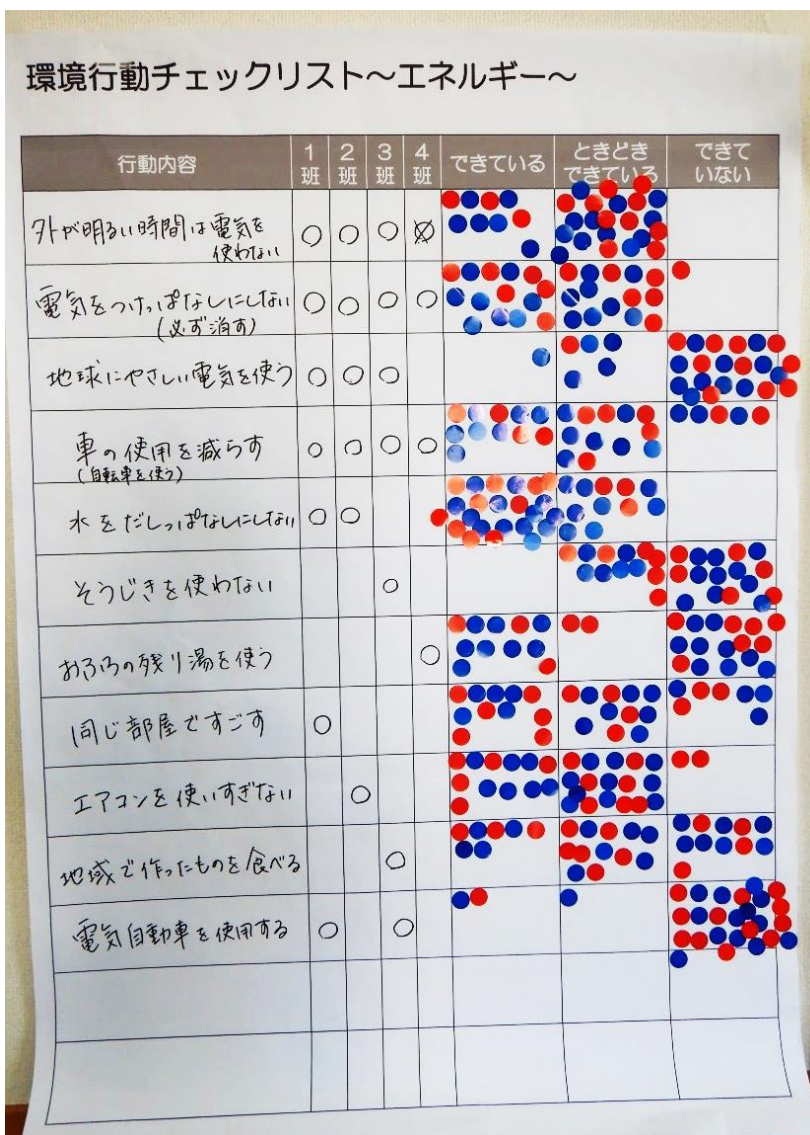 環境行動チェックリスト～エネルギー～
行動内容 1班 2班 3班 4班 できている ときどきできている できていない
外が明るい時間は電気を
使わない
電気をつけっぱなしにしない
(必ず消す)
地球にやさしい電気を使う
車の使用を減らす
(自転車を使う)
水をだしっぱなしにしない
そうじきを使わない
おふろの残り湯を使う
同じ部屋ですごす
エアコンを使いすぎない
地域で作ったものを食べる
電気自動車を使用する